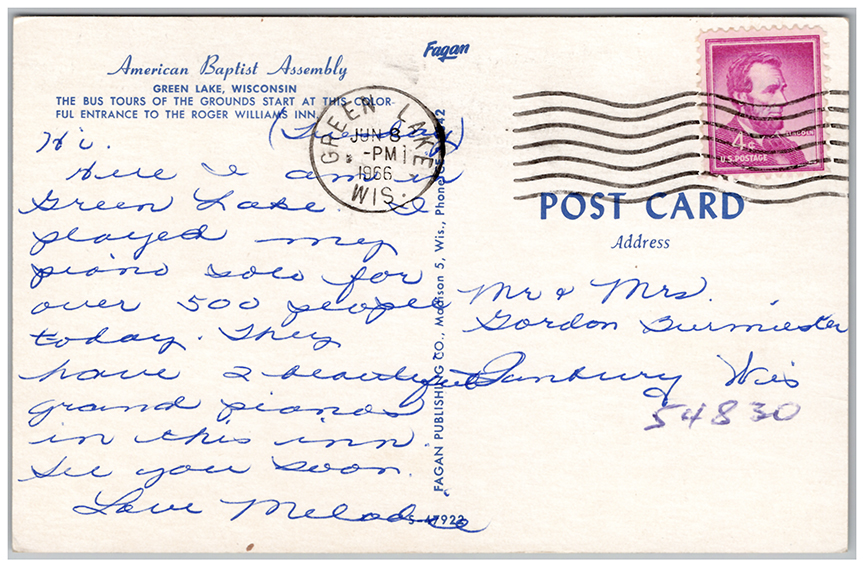 Fagan
American Baptist Assembly
GREEN LAKE, WISCONSIN
THE BUS TOURS OF THE GROUNDS START AT THIS COLOR-
FUL ENTRANCE TO THE ROGER WILLIAMS INN.
GREEN LAKE
JUN 8
-PM
1966
WIS.
4¢
LINCOLN
U.S. POSTAGE
Hi.
Here I am in
Green Lake. I
played my
piano solo for
over 500 people
today. They
have 2 beautiful
grand pianos
in this inn.
See you soon.
Love Melodie
FAGAN PUBLISHING CO., Madison 5, Wis., Phone
POST CARD
Address
Mr & Mrs.
Gordon Burmiester
Danbury Wis
54830